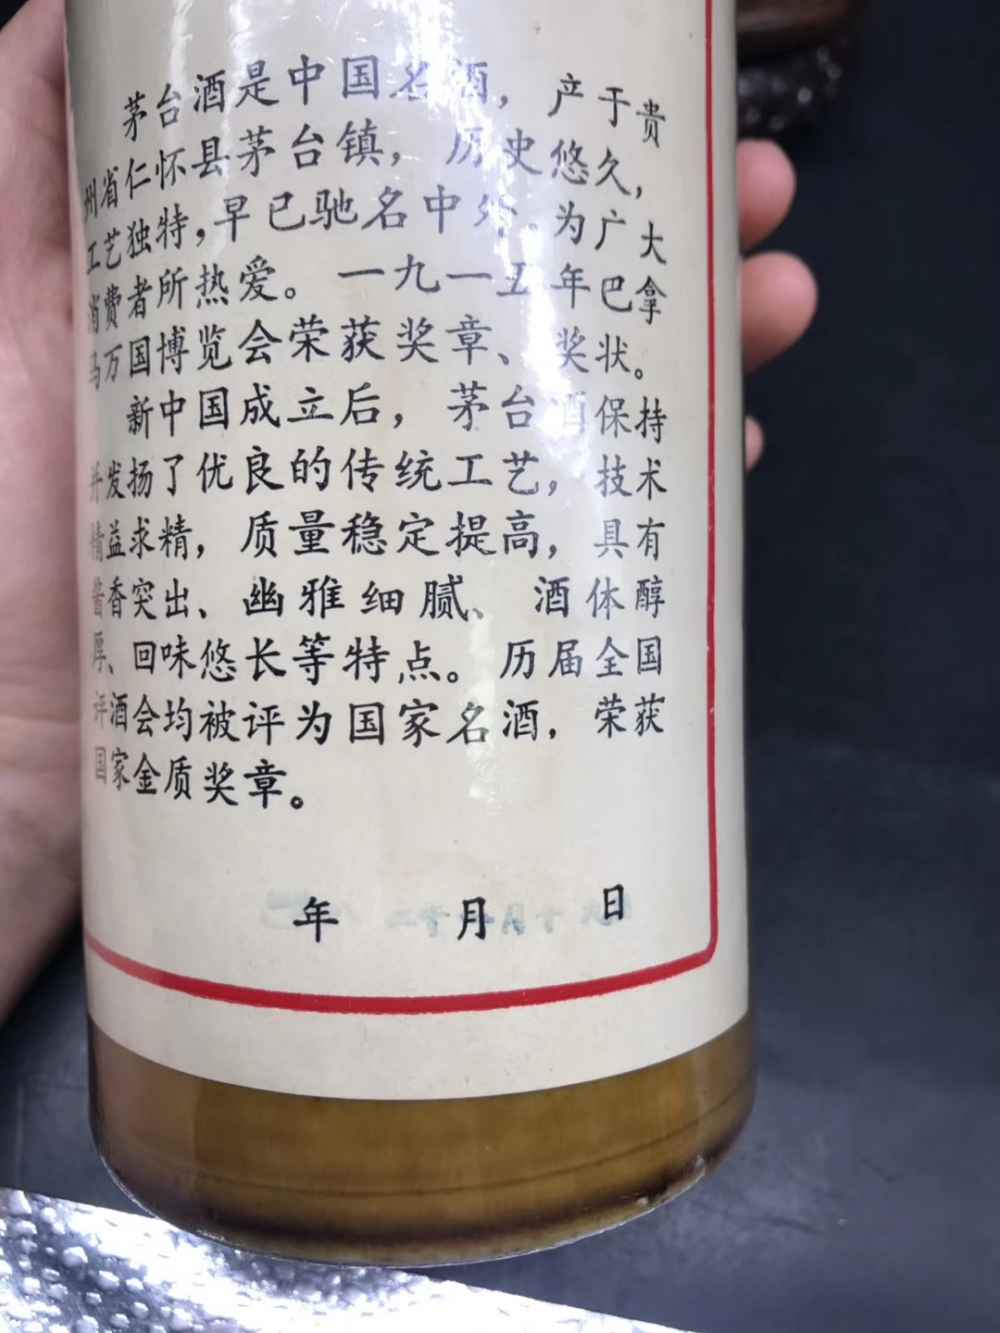 茅台酒是中国名酒，产于贵
州省仁怀县茅台镇，历史悠久，
工艺独特，早已驰名中外。为广大
消费者所热爱。一九一五年巴拿
马万国博览会荣获奖章、奖状。
新中国成立后，茅台酒保持
并发扬了优良的传统工艺，技术
精益求精，质量稳定提高，具有
酱香突出、幽雅细腻、酒体醇
厚、回味悠长等特点。历届全国
评酒会均被评为国家名酒，荣获
国家金质奖章。
年 月 日